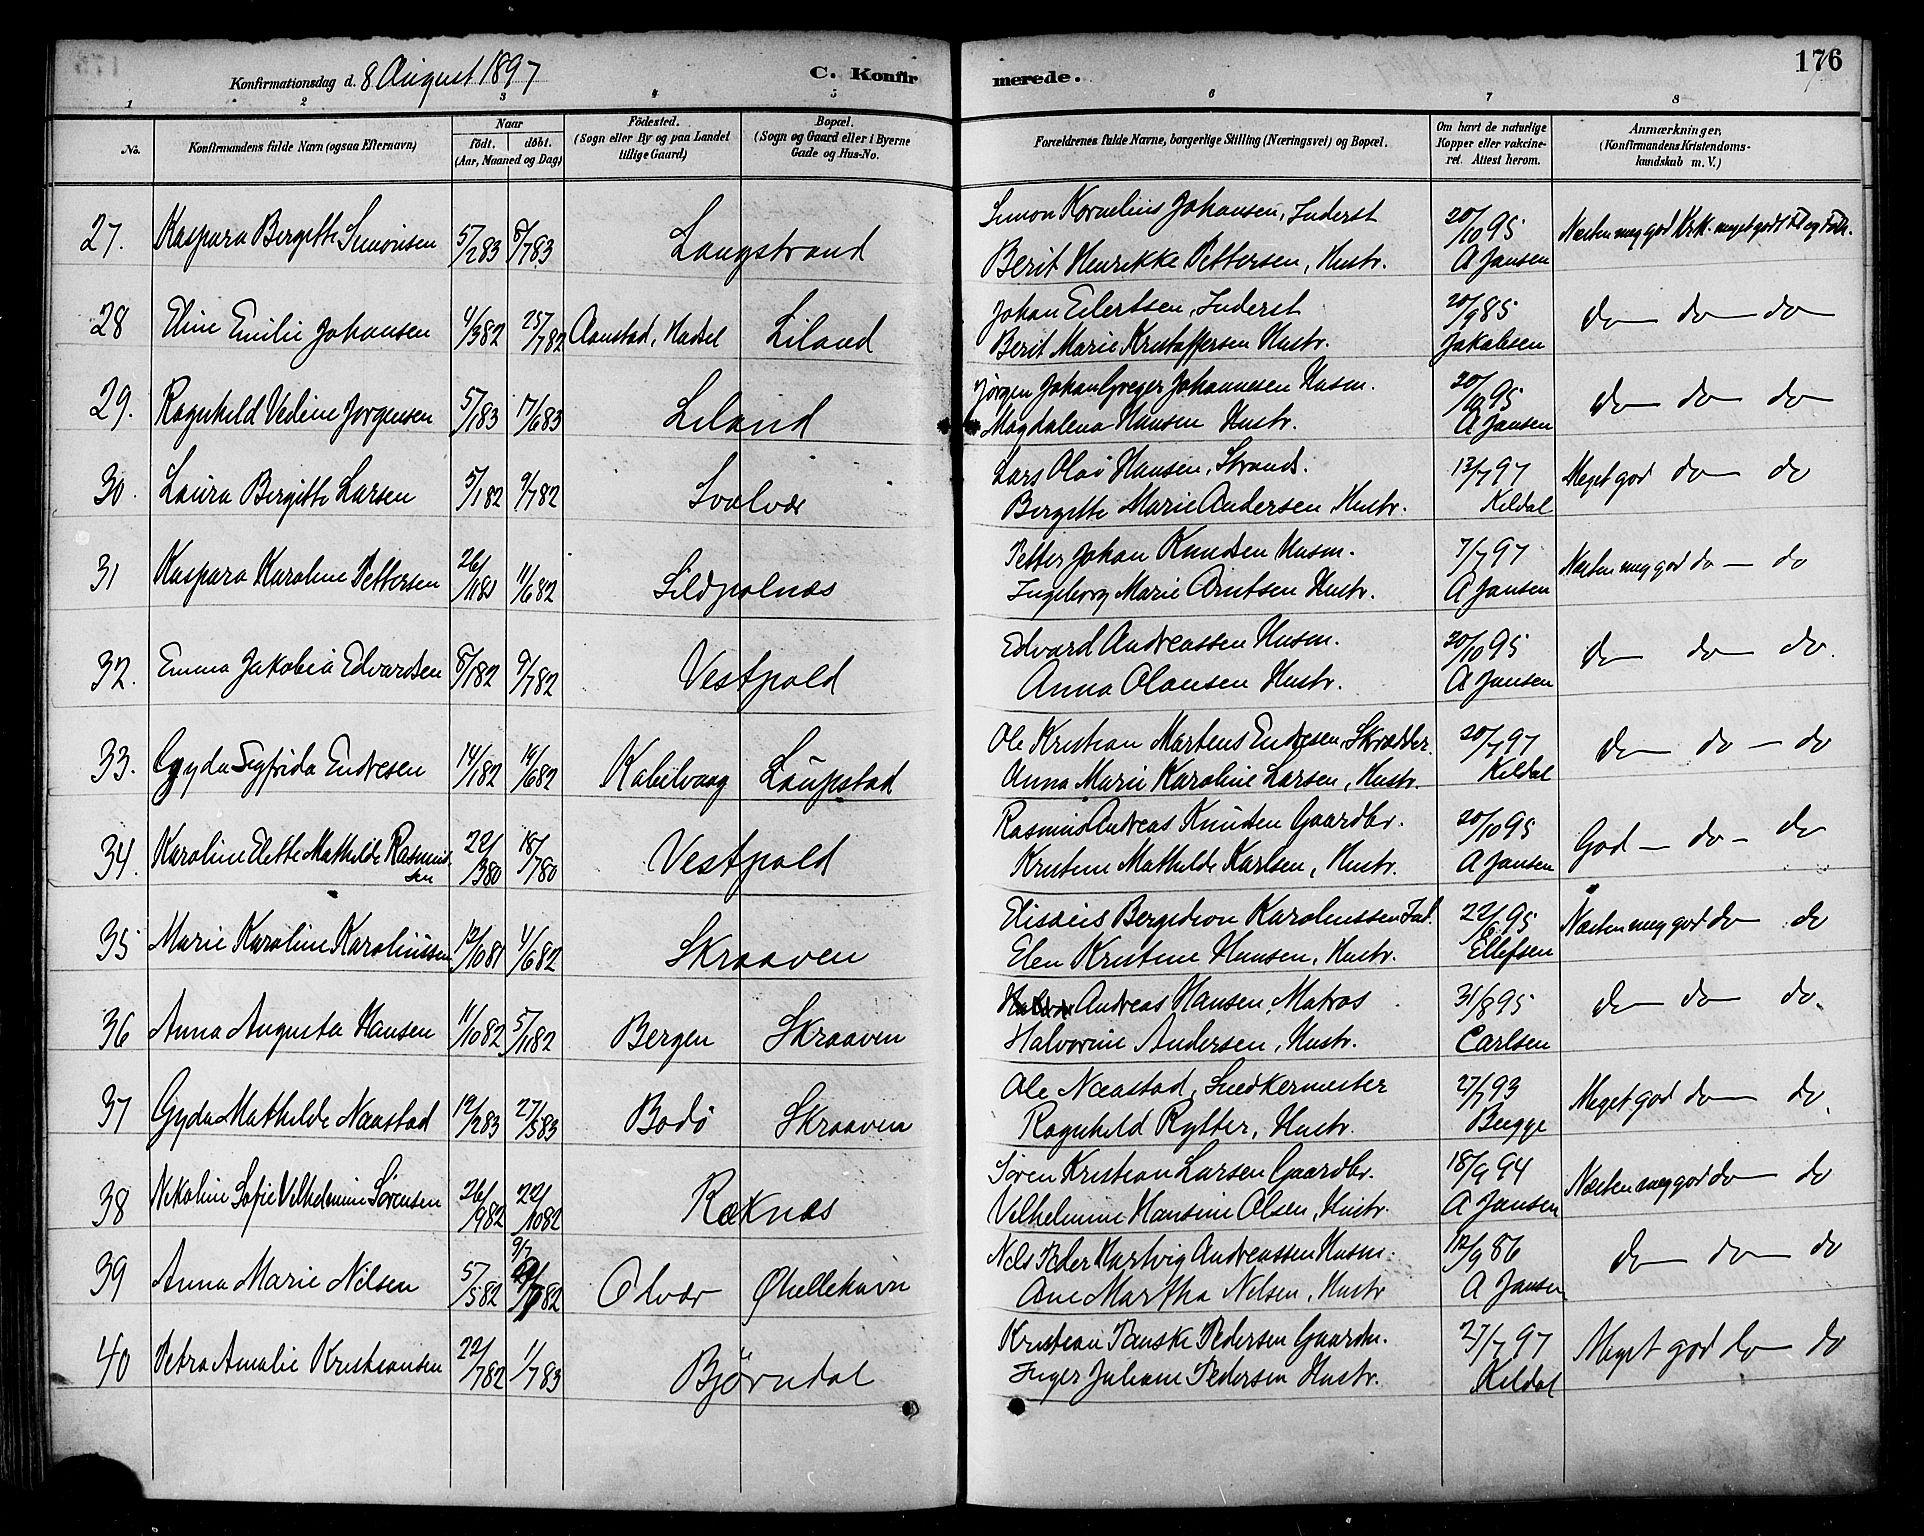 176
Konfirmationsdag d. 8 August 1897
C. Konfirmerede.
1 2 3 4 5 6 7 8
No.
Konfirmandens fulde Navn (ogsaa Efternavn)
Naar
født. døbt.
(Aar, Maaned og Dag)
Fødested.
(Sogn eller By og paa Landet
tillige Gaard)
Bopæl.
(Sogn og Gaard eller i Byerne
Gade og Hus-No.
Forældrenes fulde Navne, borgerlige Stilling (Næringsvei) og Bopæl.
Om havt de naturlige
Kopper eller vakcine-
ret. Attest herom.
Anmærkninger,
(Konfirmandens Kristendoms-
kundskab m. V.)
27. Kaspara Bergitte Simonsen 5/283 8/783 Laugstrand Simon Kornelius Johansen, Inderst 20/1095
Berit Henrikke Pettersen, Hustr. A Jansen
Næsten meg god Krk. meget godt Fl og Forh.
28 Eline Emilie Johansen 4/382 25/782 Aanstad, Hadsel Liland Johan Eilertsen, Inderst 20/985
Berit Marie Kristoffersen Hustr. Jakobsen
do do do
29. Ragnhild Vedine Jørgensen 5/183 17/683 Liland Jørgen Johan Greger Johannesen Husm. 20/1095
Magdalena Hansen Hustr. A Jansen
do do do
30. Laura Bergitte Larsen 5/182 9/782 Svolvær Lars Olai Hansen, Strands. 13/797
Bergitte Marie Andersen, Hustr. Keldal
Meget god do do
31 Kaspara Karoline Pettersen 26/1181 11/682 Sildpolnæs Petter Johan Knudsen Husm. 7/797
Ingeborg Marie Arntsen Hustr. A Jansen
Næsten meg god do — do
32. Emma Jakobia Edvardsen 8/182 9/782 Vestpold Edvard Andreassen Husm. 20/1095
Anna Olausen Hustr. A Jansen
do do do.
33. Gyda Sigfrida Endresen 14/182 19/682 Kabelvaag Laupstad Ole Kristian Martens Endresen, Skrædder. 20/797
Anna Marie Karoline Larsen, Hustr. Keldal
do — do — do
34. Karoline Elette Mathilde Rasmus
sen 22/380 18/780 Vestpold Rasmus Andreas Knudsen Gaardbr. 20/1095
Kristine Mathilde Karlsen, Hustr. A Jansen
God — do — do
35 Marie Karoline Karolinssen 12/1081 4/682 Skraaven Elisæus Bergedion Karolinssen Ind. 22/695
Elen Kristine Hansen, Hustr. Ellefsen
Næsten meg god do do
36 Anna Augusta Hansen 11/1082 5/1182 Bergen Skraaven Andreas Hansen, Matros 31/895
Halvorine Andersen, Hustr. Carlsen
do do do.
37 Gyda Mathilde Naastad 19/283 27/583 Bodø Skraaven Ole Naastad, Snedkermester 27/793
Ragnhild Rytter, Hustr. Bugge
Meget god do do.
38 Nikoline Sofie Vilhelmine Sørensen 26/982 22/1082 Ræknæs Søren Kristian Larsen Gaardbr. 18/994
Vilhelmine Hansine Olsen, Hustr. A Jansen
Næsten meg god do do
39 Anna Marie Nilsen 5/582 9/7 82 Olvær Øhellehavn Nils Peder Hartvig Andreassen Husm. 12/986
Ane Martha Nilsen, Hustr A Jansen
do do do
40 Petra Amalie Kristiansen 22/782 1/783 Bjørndal Kristian Panske Pedersen Gaardm. 27/797
Inger Juliane Pedersen Hustr. Keldal
Meget god do do